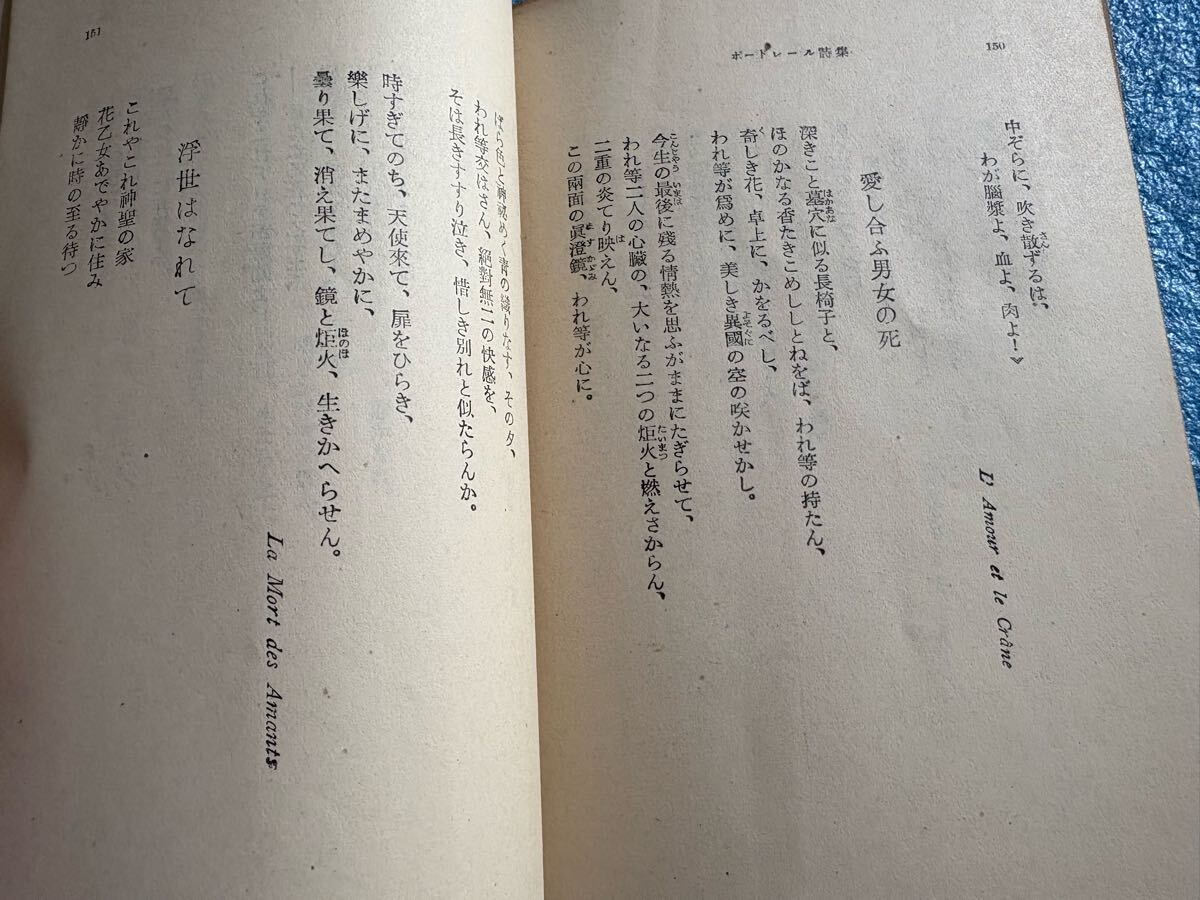 150
ボードレール詩集
中ぞらに、吹き散ずるは、
わが腦漿よ、血よ、肉よ!》
L'Amour et le Crâne
愛し合ふ男女の死
深きこと墓穴に似る長椅子と、
ほのかなる香たきこめししとねをば、われ等の持たん、
奇しき花、卓上に、かをるべし、
われ等が爲めに、美しき異國の空の咲かせかし。
今生の最後に殘る情熱を思ふがままにたぎらせて、
われ等二人の心臟の、大いなる二つの炬火と燃えさからん、
二重の炎てり映えん、
この兩面の眞澄鏡、われ等が心に。
151
ばら色と神祕めく青の織りなす、その夕、
われ等交はさん、絕對無二の快感を、
そは長きすすり泣き、惜しき別れと似たらんか。
時すぎてのち、天使來て、扉をひらき、
樂しげに、またまめやかに、
曇り果て、消え果てし、鏡と炬火、生きかへらせん。
La Mort des Amants
浮世はなれて
これやこれ神聖の家
花乙女あでやかに住み
靜かに時の至る待つ